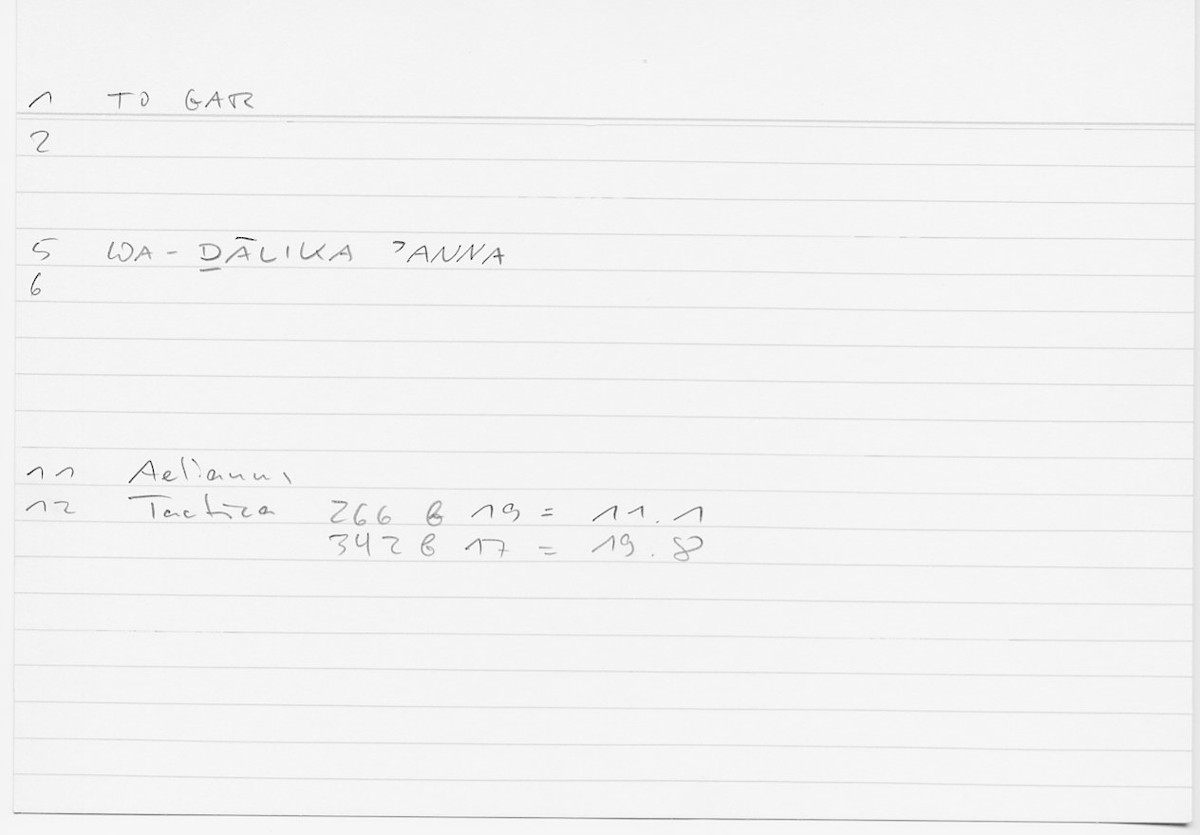 1 TO GAR
2
5 WA-ḎĀLIKA ʾANNA
6
11 Aelianus
12 Tactica 266 b 19 = 11.1
342 b 17 = 19.8